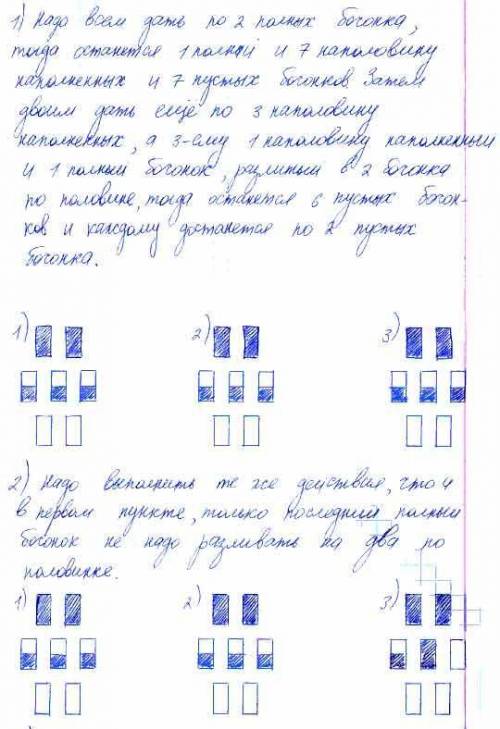 1) Надо всем дать по 2 полных богонка,
тогда останется 1 полный и 7 наполовину
наполненных и 7 пустых богонков. Затем
двоим дать ещё по 3 наполовину
наполненных, а 3-ему 1 наполовину наполненный
и 1 полный богонок, разлитый в 2 богонка
по половине, тогда останется 6 пустых богон-
ков и каждому достанется по 2 пустых
богонка.
1) 2) 3)
2) Надо выполнить те же действия, что и
в первом пункте, только последний полный
богонок не надо разливать на два по
половинке.
1) 2) 3)